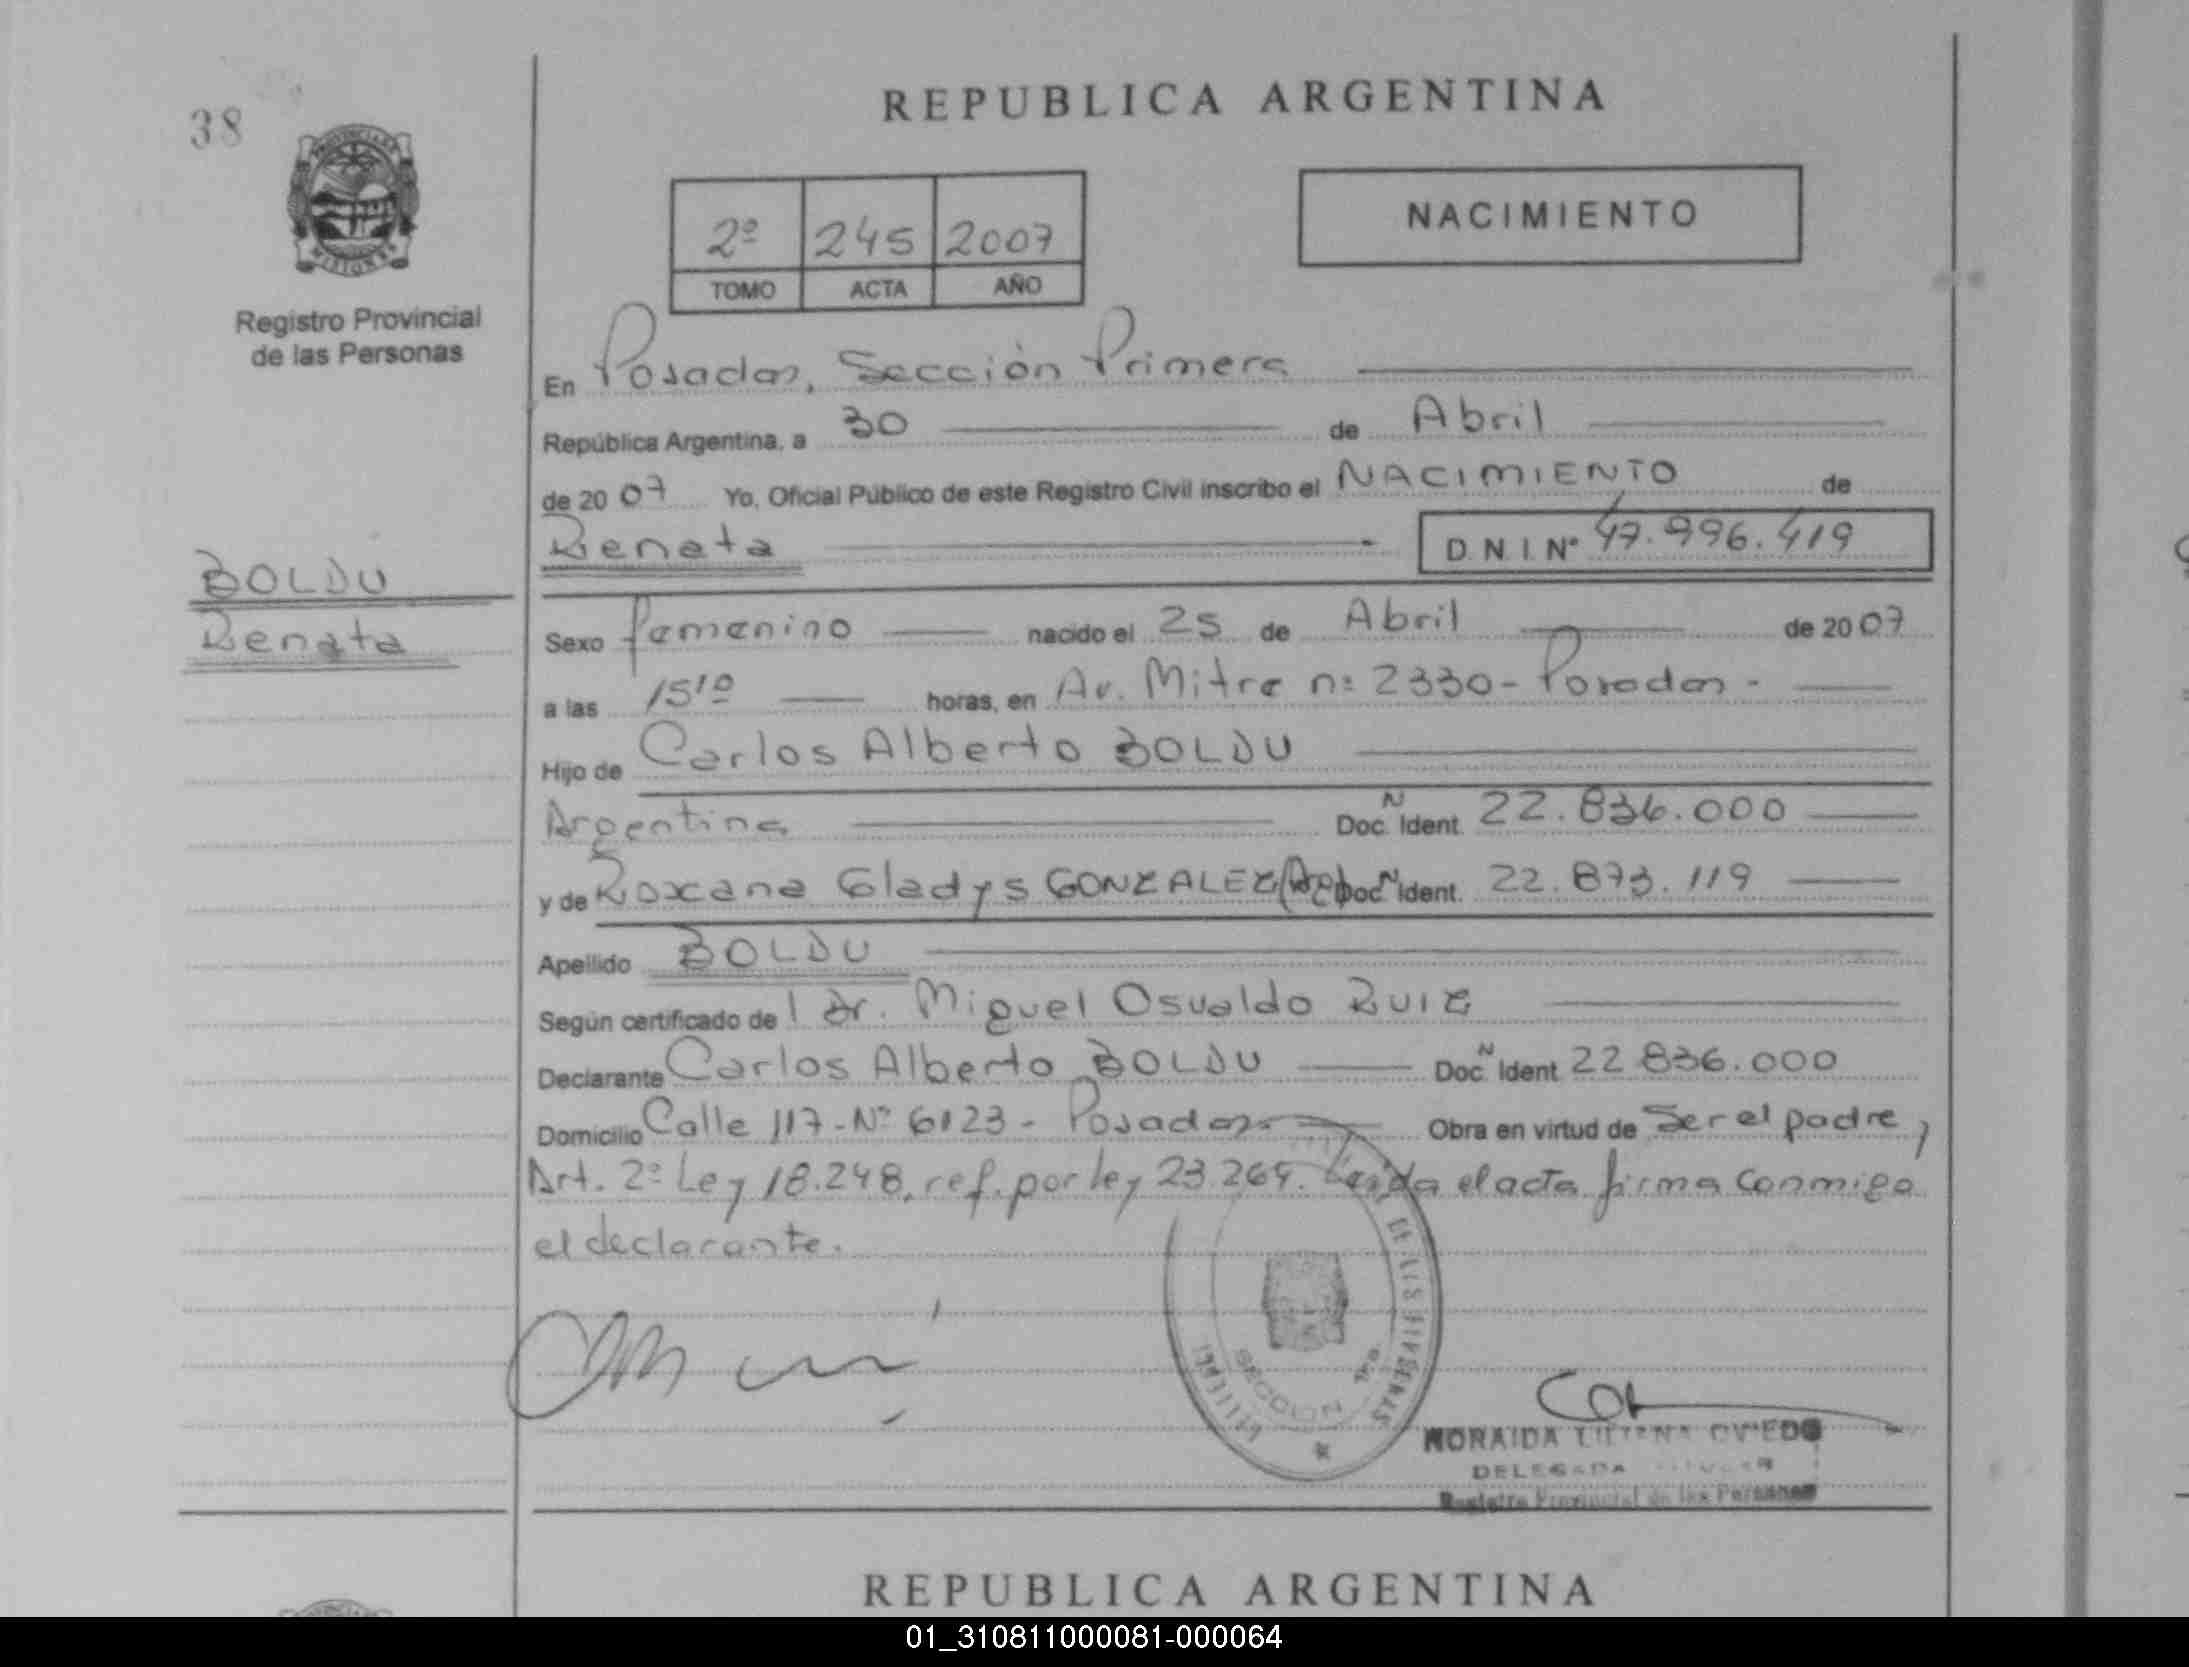 38
REPUBLICA ARGENTINA
PROVINCIA DE
MISIONES
Registro Provincial
de las Personas
2º 245 2007
TOMO ACTA AÑO
NACIMIENTO
En Posadas, Sección Primera
República Argentina, a 30 de Abril
de 2007 Yo, Oficial Público de este Registro Civil inscribo el NACIMIENTO de
Renata D.N.I.Nº 47.996.419
BOLDU
Renata
Sexo femenino nacido el 25 de Abril de 2007
a las 15¹⁰ horas, en Av. Mitre nº 2330 - Posadas -
Hijo de Carlos Alberto BOLDU
Argentina Doc. N Ident. 22.836.000
y de Roxana Gladys GONZALEZ (Arg) Doc. N Ident. 22.873.119
Apellido BOLDU
Según certificado del Dr. Miguel Osvaldo RUIZ
Declarante Carlos Alberto BOLDU Doc. N Ident. 22.836.000
Domicilio Calle 117 - Nº 6123 - Posadas - Obra en virtud de Ser el padre,
Art. 2º Ley 18.248, ref. por ley 23.264. Leída el acta firma conmigo
el declarante.
DE LAS PERSONAS
SECCION 1ra
NORAIDA LILIANA OVIEDO
DELEGADA
Registro Provincial de las Personas
REPUBLICA ARGENTINA
01_310811000081-000064